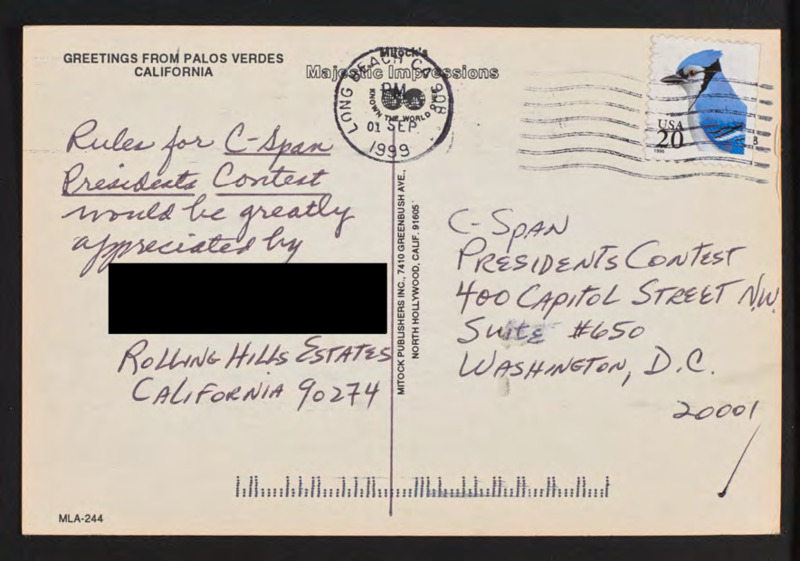 GREETINGS FROM PALOS VERDES
CALIFORNIA
Mitock's
Majestic Impressions
LONG BEACH CA 908
PM
KNOWN THE WORLD
01 SEP
1999
USA
20
1996
Rules for C-Span
Presidents Contest
would be greatly
appreciated by
ROLLING HILLS ESTATES
CALIFORNIA 90274
MITOCK PUBLISHERS INC., 7410 GREENBUSH AVE.,
NORTH HOLLYWOOD, CALIF. 91605
C-SPAN
PRESIDENTS CONTEST
400 CAPITOL STREET N.W.
SUITE #650
WASHINGTON, D.C.
20001
MLA-244